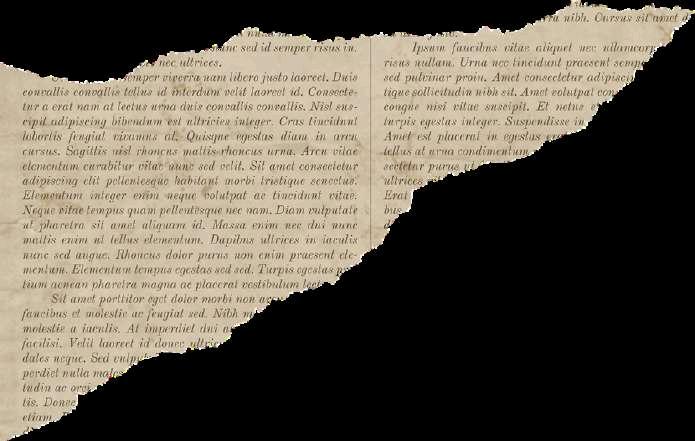 nunc sed id semper risus in.
nec ultrices.
semper viverra nam libero justo laoreet. Duis
convallis convallis tellus id interdum velit laoreet id. Consecte-
tur a erat nam at lectus urna duis convallis convallis. Nisl sus-
cipit adipiscing bibendum est ultricies integer. Cras tincidunt
lobortis feugiat vivamus at. Quisque egestas diam in arcu
cursus. Sagittis nisl rhoncus mattis rhoncus urna. Arcu vitae
elementum curabitur vitae nunc sed velit. Sit amet consectetur
adipiscing elit pellentesque habitant morbi tristique senectus.
Elementum integer enim neque volutpat ac tincidunt vitae.
Neque vitae tempus quam pellentesque nec nam. Diam vulputate
ut pharetra sit amet aliquam id. Massa enim nec dui nunc
mattis enim ut tellus elementum. Dapibus ultrices in iaculis
nunc sed augue. Rhoncus dolor purus non enim praesent ele-
mentum. Elementum tempus egestas sed sed. Turpis egestas
tium aenean pharetra magna ac placerat vestibulum
Sit amet porttitor eget dolor morbi non
faucibus et molestie ac feugiat sed. Nibh
molestie a iaculis. At imperdiet dui
facilisi. Velit laoreet id donec
dales neque. Sed
perdiet nulla
tudin ac
tis. Donec
etiam.
nibh. Cursus sit amet
Ipsum faucibus vitae aliquet nec
risus nullam. Urna nec tincidunt praesent
sed pulvinar proin. Amet consectetur
tique sollicitudin nibh sit. Amet volutpat
congue nisi vitae suscipit. Et netus
turpis egestas integer. Suspendisse in
Amet est placerat in egestas
tellus at urna condimentum
sectetur purus
ultrices
Erat